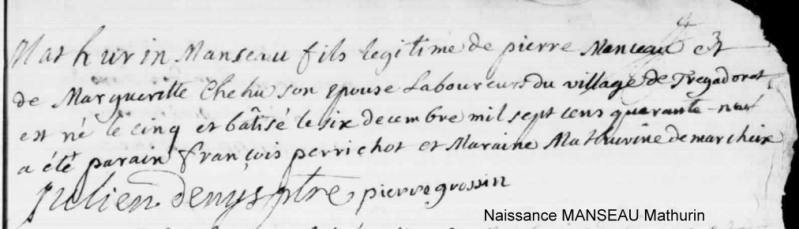 Mathurin Manseau fils legitime de pierre Manceau et
de Margueritte Chehu son epouse Laboureurs du village de Tregadorat
est né le cinq et bâtisé le six decembre mil sept cens quarante-neuf
a été parain françois perrichot et Maraine Mathurine demarcheix
Julien Denys ptre pierre grossin
Naissance MANSEAU Mathurin